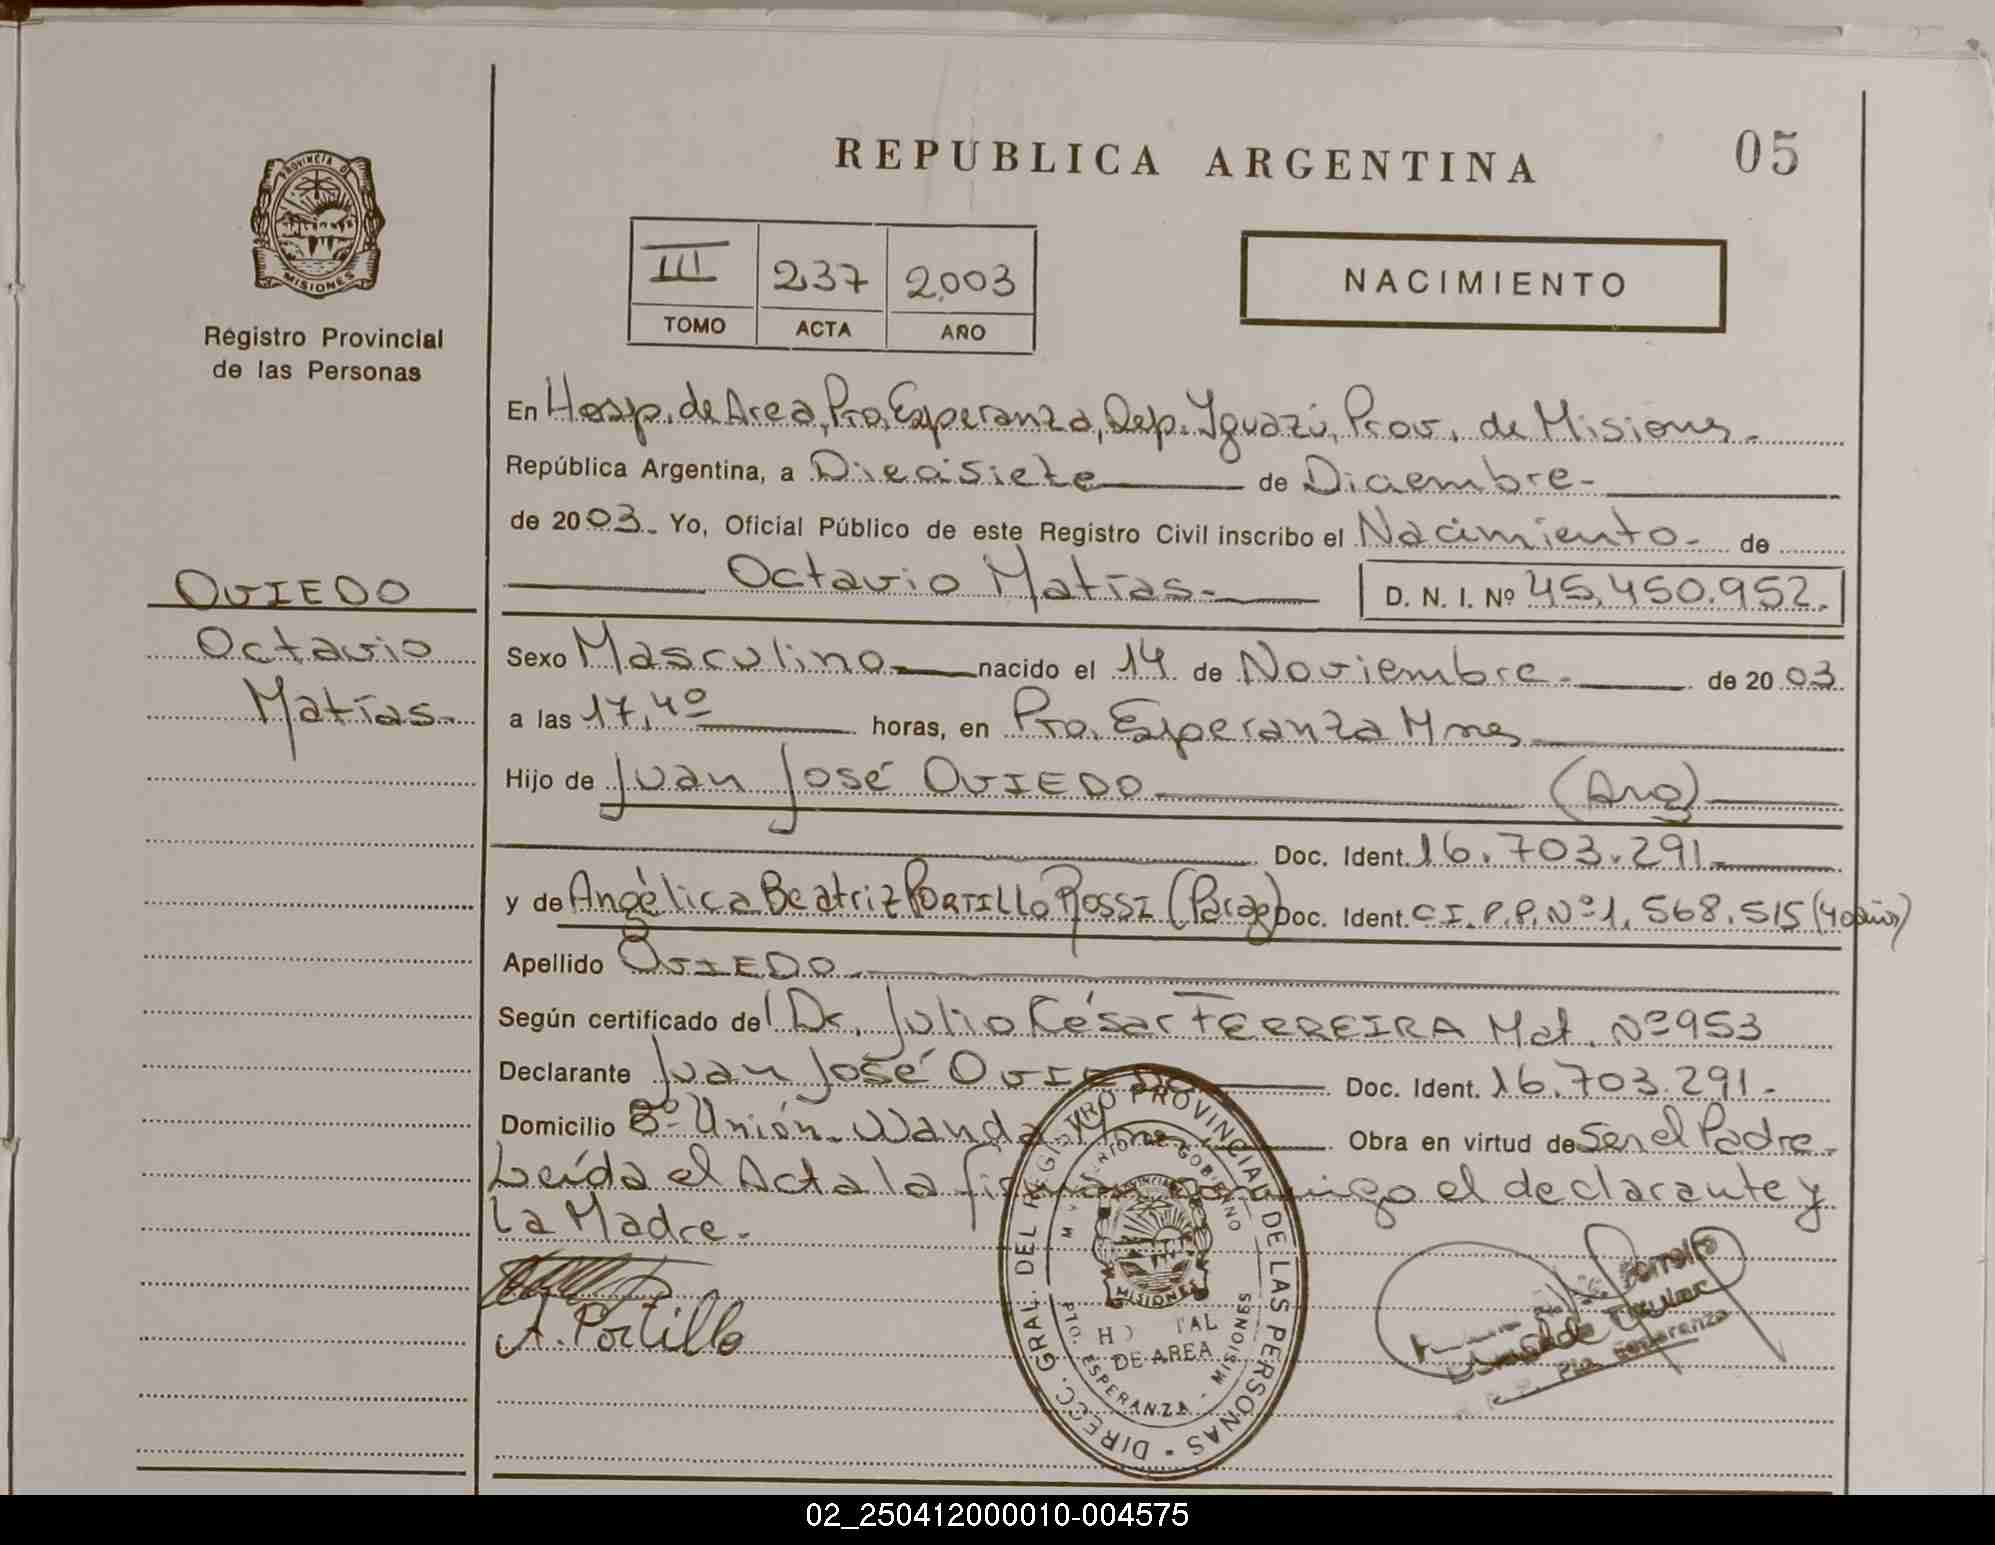 REPUBLICA ARGENTINA
05
PROVINCIA DE MISIONES
Registro Provincial
de las Personas
III 237 2.003
TOMO ACTA AÑO
NACIMIENTO
En Hosp. de Area, Pto. Esperanza, Dep. Iguazú, Prov. de Misiones.
República Argentina, a Diecisiete de Diciembre-
de 2003. Yo, Oficial Público de este Registro Civil inscribo el Nacimiento- de
Octavio Matías.- D. N. I. Nº 45.450.952.
OVIEDO
Octavio
Matías.-
Sexo Masculino nacido el 14 de Noviembre.- de 2003.
a las 17,40 horas, en Pto. Esperanza Mnes
Hijo de Juan José OVIEDO (Arg)
Doc. Ident. 16.703.291.
y de Angélica Beatriz PORTILLO ROSSI (Parag) Doc. Ident. C.I.P.P. Nº 1.568.515 (40 años)
Apellido OVIEDO
Según certificado del Dr. Julio César FERREIRA Mat. Nº 953
Declarante Juan José OVIEDO Doc. Ident. 16.703.291.-
Domicilio Bº Unión. Wanda Obra en virtud de Ser el Padre.-
Leída el Acta la firman conmigo el declarante y
La Madre.-
A. Portillo
DIRECC. GRAL. DEL REGISTRO PROVINCIAL DE LAS PERSONAS
GOBIERNO
MISIONES
DE AREA
PTO. ESPERANZA - MISIONES
Titular
Pto. Esperanza
02_250412000010-004575